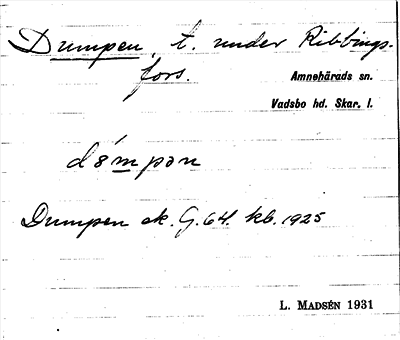 Dumpen, t. under Ribbings-
fors.
Amnehärads sn.
Vadsbo hd. Skar. l.
dómpən
Dumpen ek. G. 64 kb. 1925
L. MADSÉN 1931